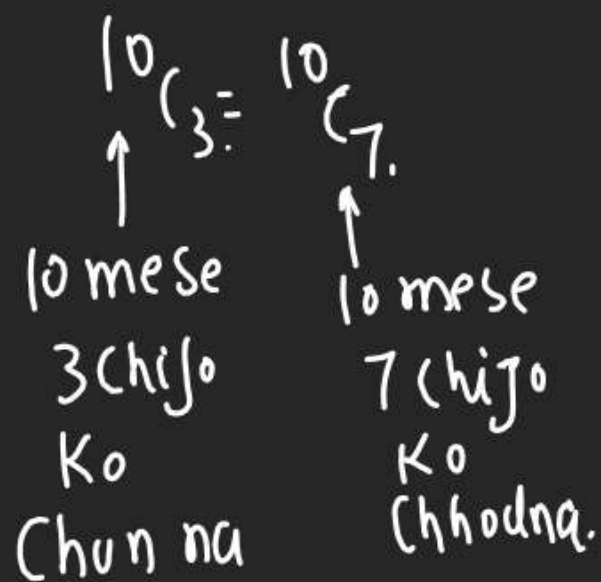 ¹⁰C₃ = ¹⁰C₇.
10 mese
3 Chijo
Ko
Chun na
10 mese
7 Chijo
Ko
Chhodna.